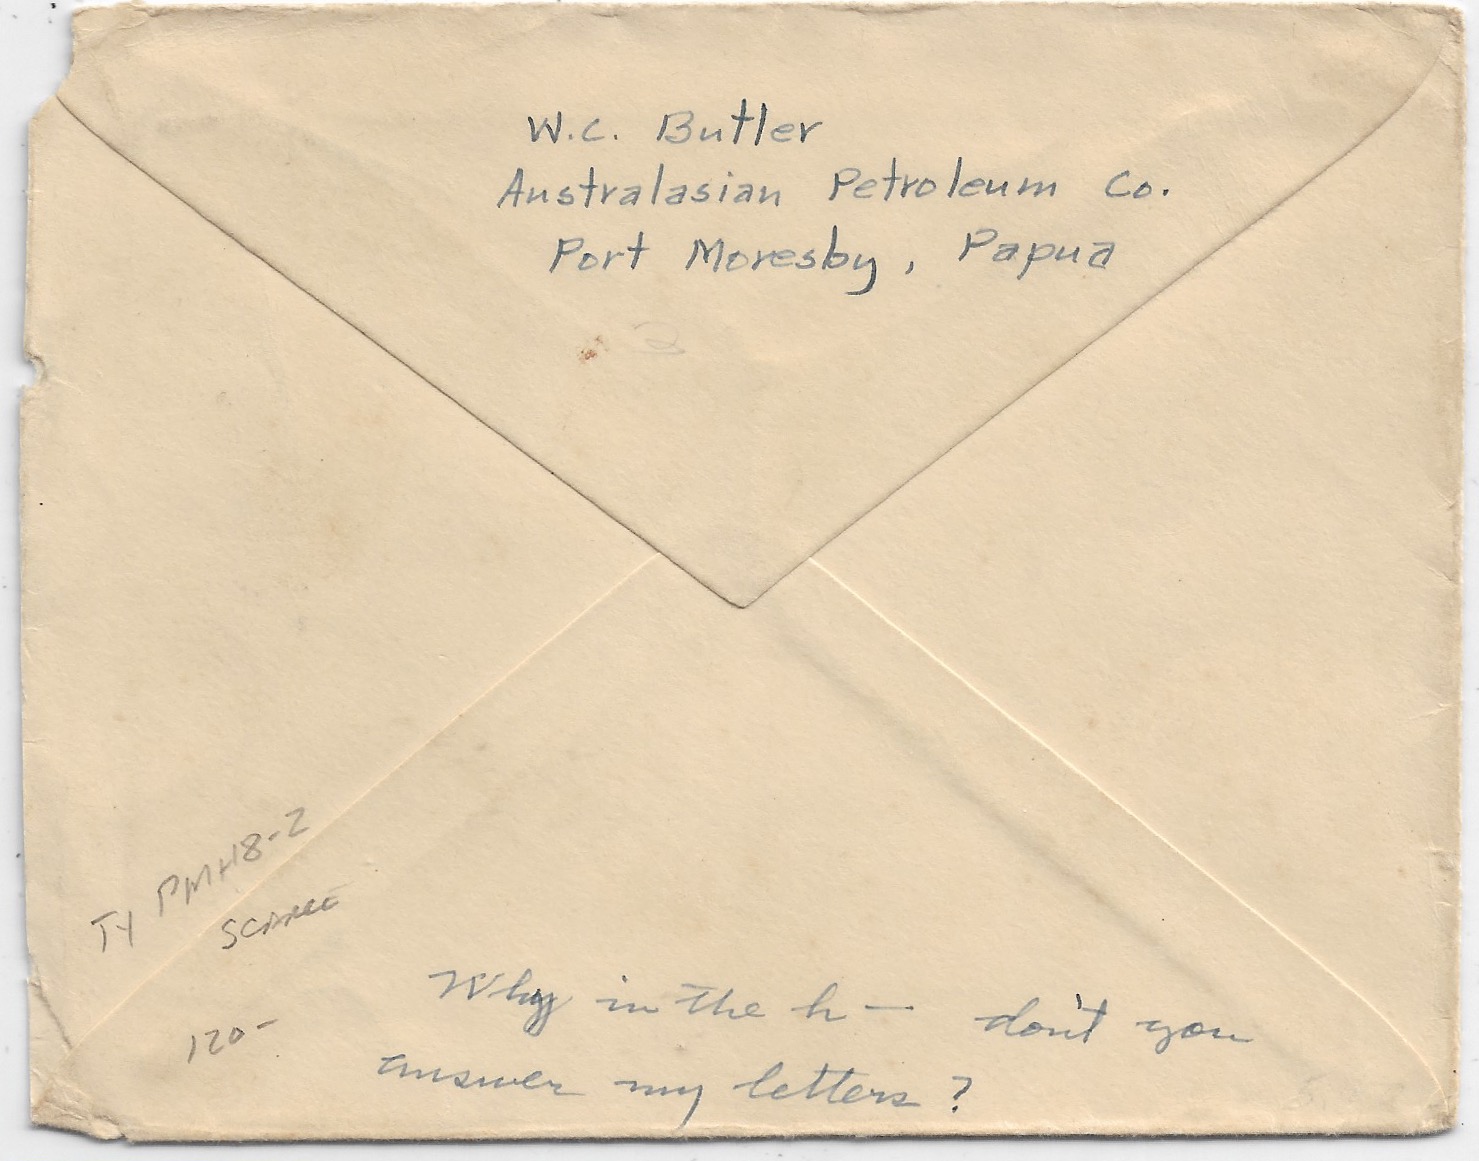 W.C. Butler
Australasian Petroleum Co.
Port Moresby, Papua
TY PMH8-2
SCARCE
120-
Why in the h— don't you
answer my letters?